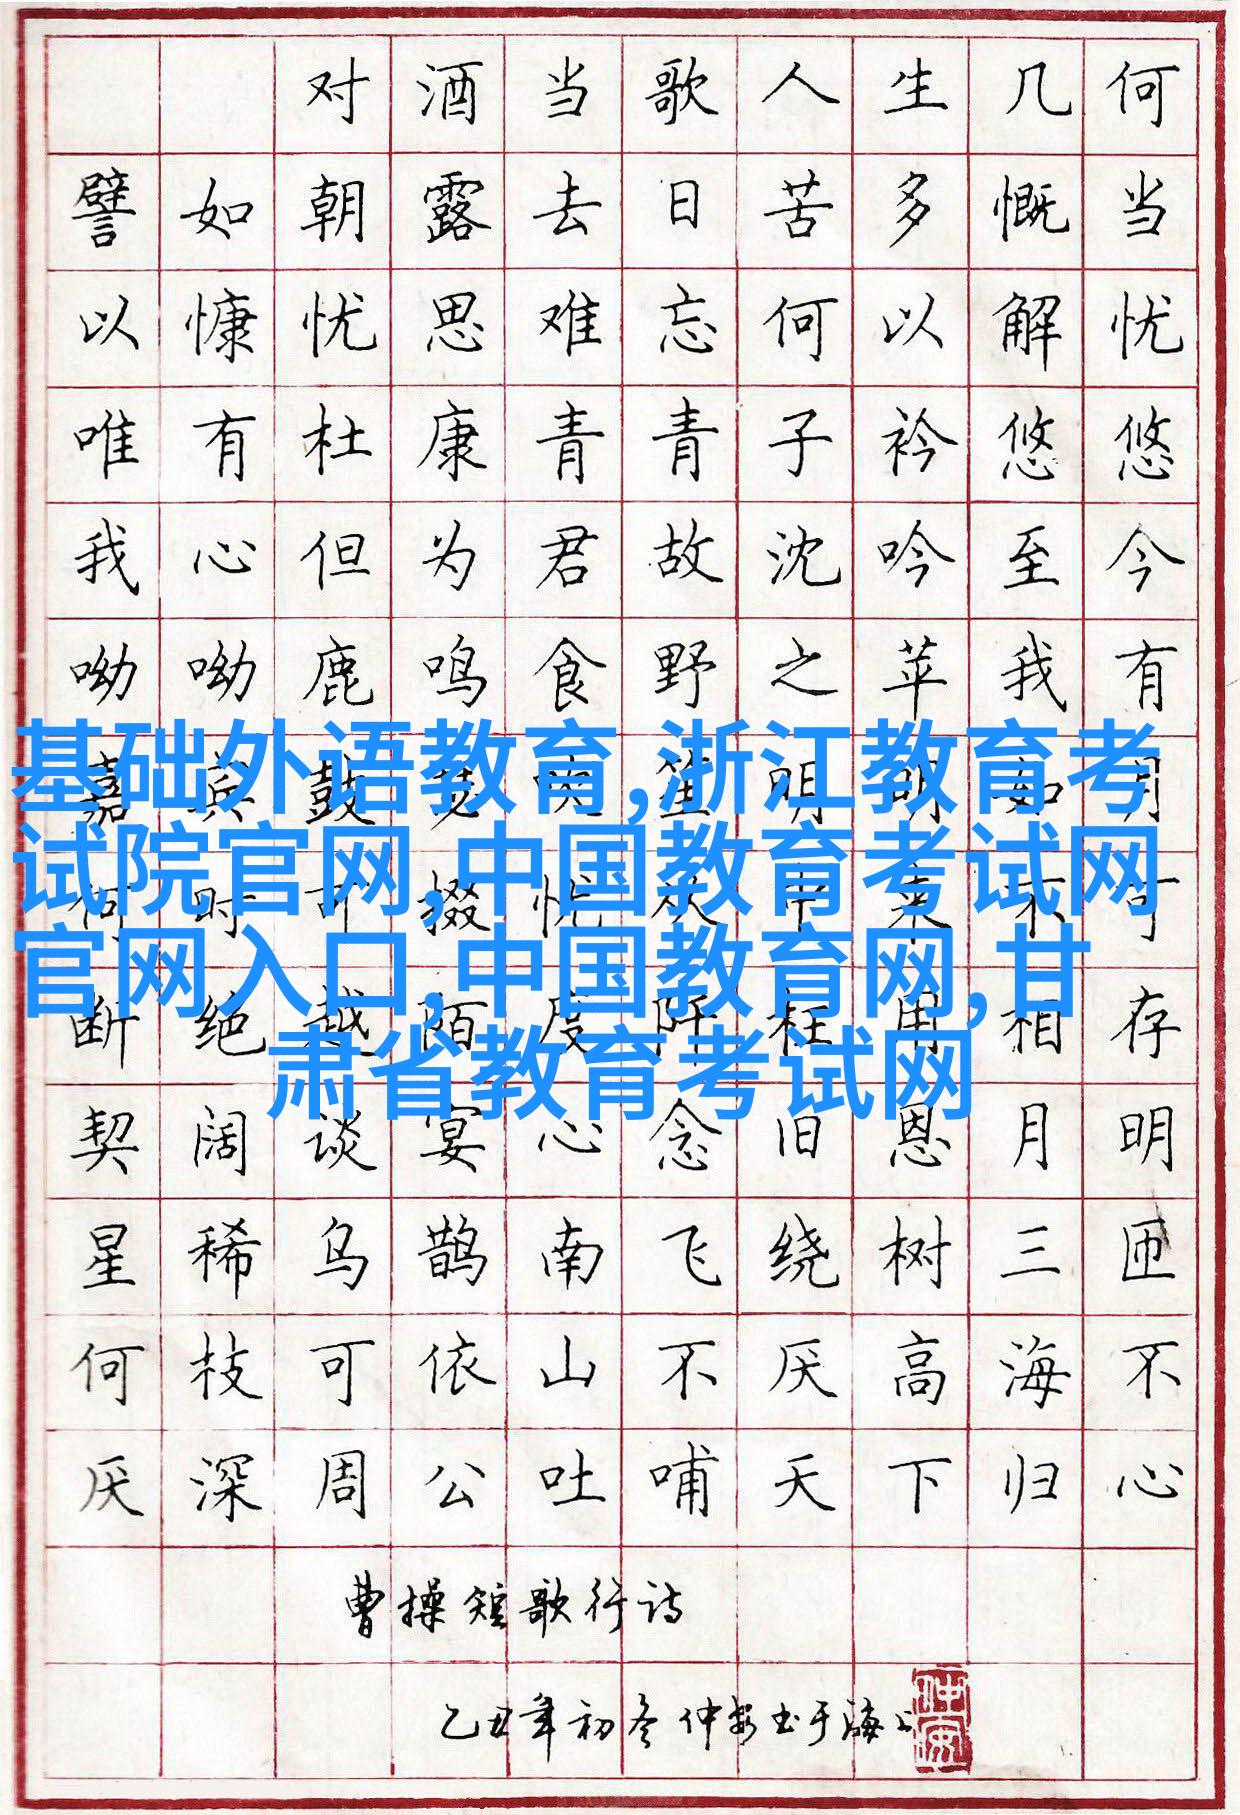 对酒当歌人生几何
譬如朝露去日苦多慨当
以慷忧思难忘何以解忧
唯有杜康青青子衿悠悠
我心但为君故沈吟至今
呦呦鹿鸣食野之苹我有
基础外语教育,浙江教育考
试院官网,中国教育考试网
官网入口,中国教育网,甘
肃省教育考试网
嘉宾鼓瑟吹笙明明如月
何时可掇忧从中来不可
断绝越陌度阡枉用相存
契阔谈宴心念旧恩月明
星稀乌鹊南飞绕树三匝
何枝可依山不厌高海不
厌深周公吐哺天下归心
曹操短歌行诗
乙丑年初冬仲安书于海上
仲安